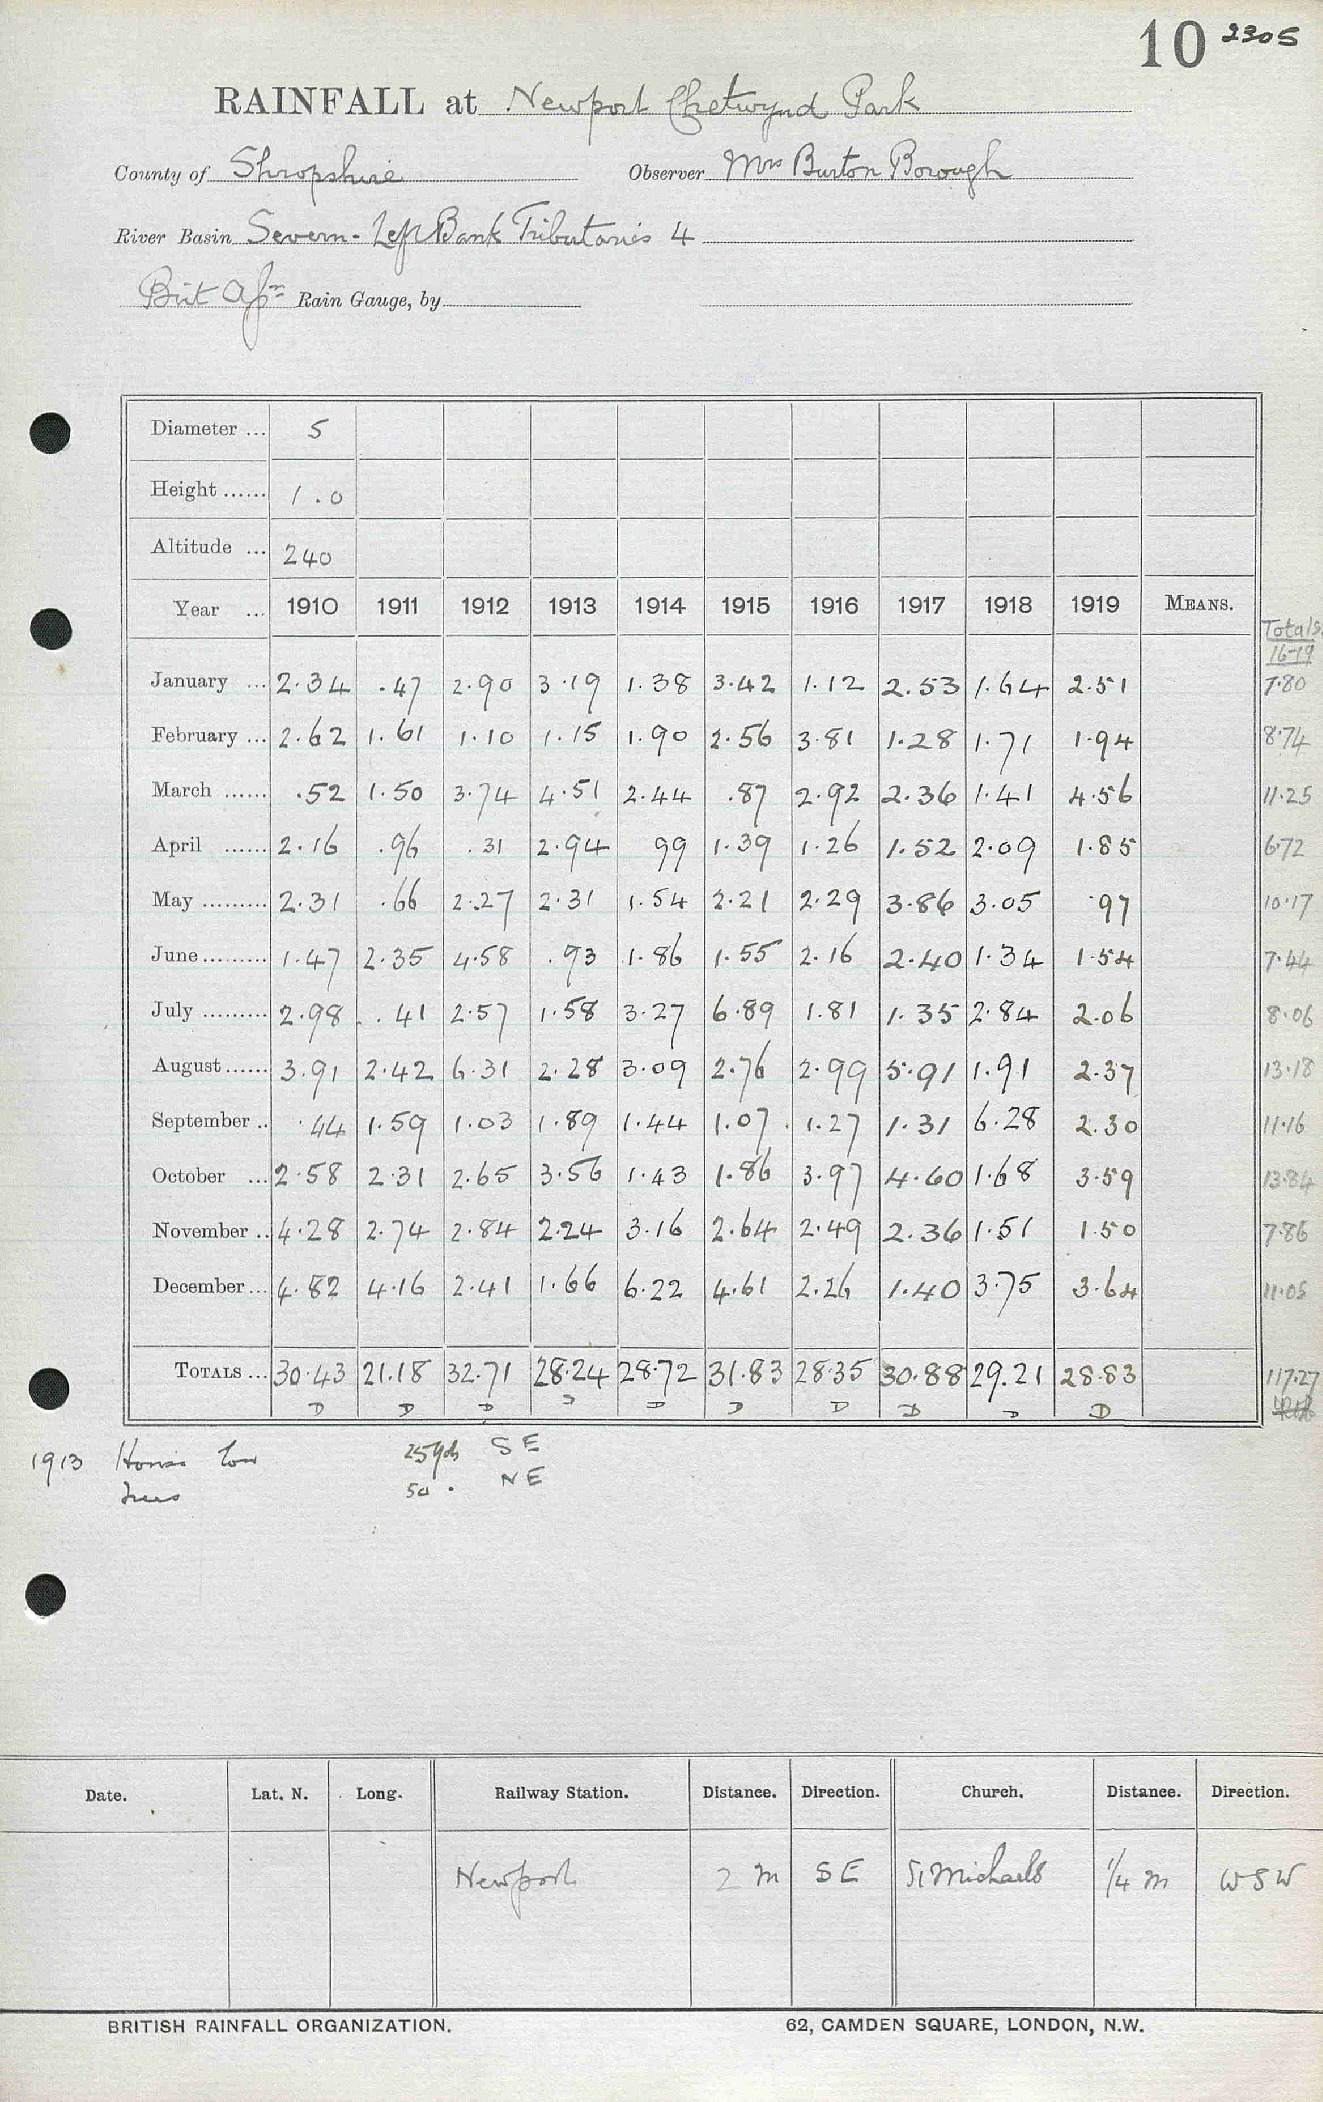 10 2305
RAINFALL at Newport Chetwynd Park
County of Shropshire Observer Mrs Burton Borough
River Basin Severn - Left Bank Tributaries 4
Rain Gauge, by
Diameter ... 5
Height ...... 1.0
Altitude ... 240
Year ... 1910 1911 1912 1913 1914 1915 1916 1917 1918 1919 MEANS. Totals. 16-19
January ... 2.34 .47 2.90 3.19 1.38 3.42 1.12 2.53 1.64 2.51 7.80
February ... 2.62 1.61 1.10 1.15 1.90 2.56 3.81 1.28 1.71 1.94 8.74
March ...... .52 1.50 3.74 4.51 2.44 .87 2.92 2.36 1.41 4.56 11.25
April ...... 2.16 .96 .31 2.94 99 1.39 1.26 1.52 2.09 1.85 6.72
May ......... 2.31 .66 2.27 2.31 1.54 2.21 2.29 3.86 3.05 .97 10.17
June ......... 1.47 2.35 4.58 .93 1.86 1.55 2.16 2.40 1.34 1.54 7.44
July ......... 2.98 .41 2.57 1.58 3.27 6.89 1.81 1.35 2.84 2.06 8.06
August ...... 3.91 2.42 6.31 2.28 3.09 2.76 2.99 5.91 1.91 2.37 13.18
September .. .44 1.59 1.03 1.89 1.44 1.07 1.27 1.31 6.28 2.30 11.16
October ... 2.58 2.31 2.65 3.56 1.43 1.86 3.97 4.60 1.68 3.59 13.84
November .. 4.28 2.74 2.84 2.24 3.16 2.64 2.49 2.36 1.51 1.50 7.86
December ... 4.82 4.16 2.41 1.66 6.22 4.61 2.26 1.40 3.75 3.64 11.05
TOTALS ... 30.43 21.18 32.71 28.24 28.72 31.83 28.35 30.88 29.21 28.83 117.27
D D D D D D D D D D
1913 House low 25 yds SE
Trees 50 . NE
Date. Lat. N. Long. Railway Station. Distance. Direction. Church. Distance. Direction.
Newport 2 m SE St Michaels 1/4 m WSW
BRITISH RAINFALL ORGANIZATION. 62, CAMDEN SQUARE, LONDON, N.W.